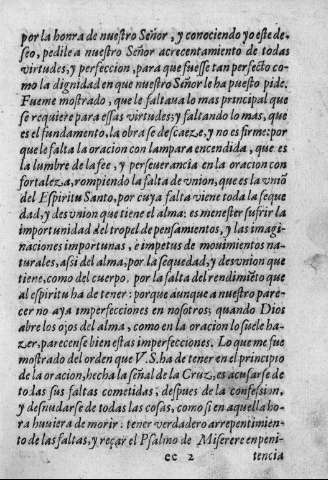 por la honra de nuestro Señor, y conociendo yo este de-
seo, pedile a nuestro Señor acrecentamiento de todas
virtudes, y perfeccion, para que fuesse tan perfecto co-
mo la dignidad en que nuestro Señor le ha puesto pide.
Fueme mostrado, que le faltaua lo mas principal que
se requiere para essas virtudes; y faltando lo mas, que
es el fundamento, la obra se descaeze, y no es firme: por
que le falta la oracion con lampara encendida, que es
la lumbre de la fee, y perseuerancia en la oracion con
fortaleza, rompiendo la falta de vnion, que es la vniõ
del Espiritu Santo, por cuya falta viene toda la seque
dad, y desvnion que tiene el alma: es menester sufrir la
importunidad del tropel de pensamientos, y las imagi
naciones importunas, e impetus de mouimientos na-
turales, assi del alma, por la sequedad, y desvnion que
tiene, como del cuerpo, por la falta del rendimiẽto que
al espiritu ha de tener: porque aunque a nuestro pare-
cer no aya imperfecciones en nosotros; quando Dios
abre los ojos del alma, como en la oracion lo suele ha-
zer, parecense bien estas imperfecciones. Lo que me fue
mostrado del orden que V.S. ha de tener en el principio
de la oracion, hecha la señal de la Cruz, es acusarse de
todas sus faltas cometidas, despues de la confession,
y desnudarse de todas las cosas, como si en aquella ho-
ra huuiera de morir: tener verdadero arrepentimien-
to de las faltas, y reçar el Psalmo de Miserere en peni-
cc 2 tencia